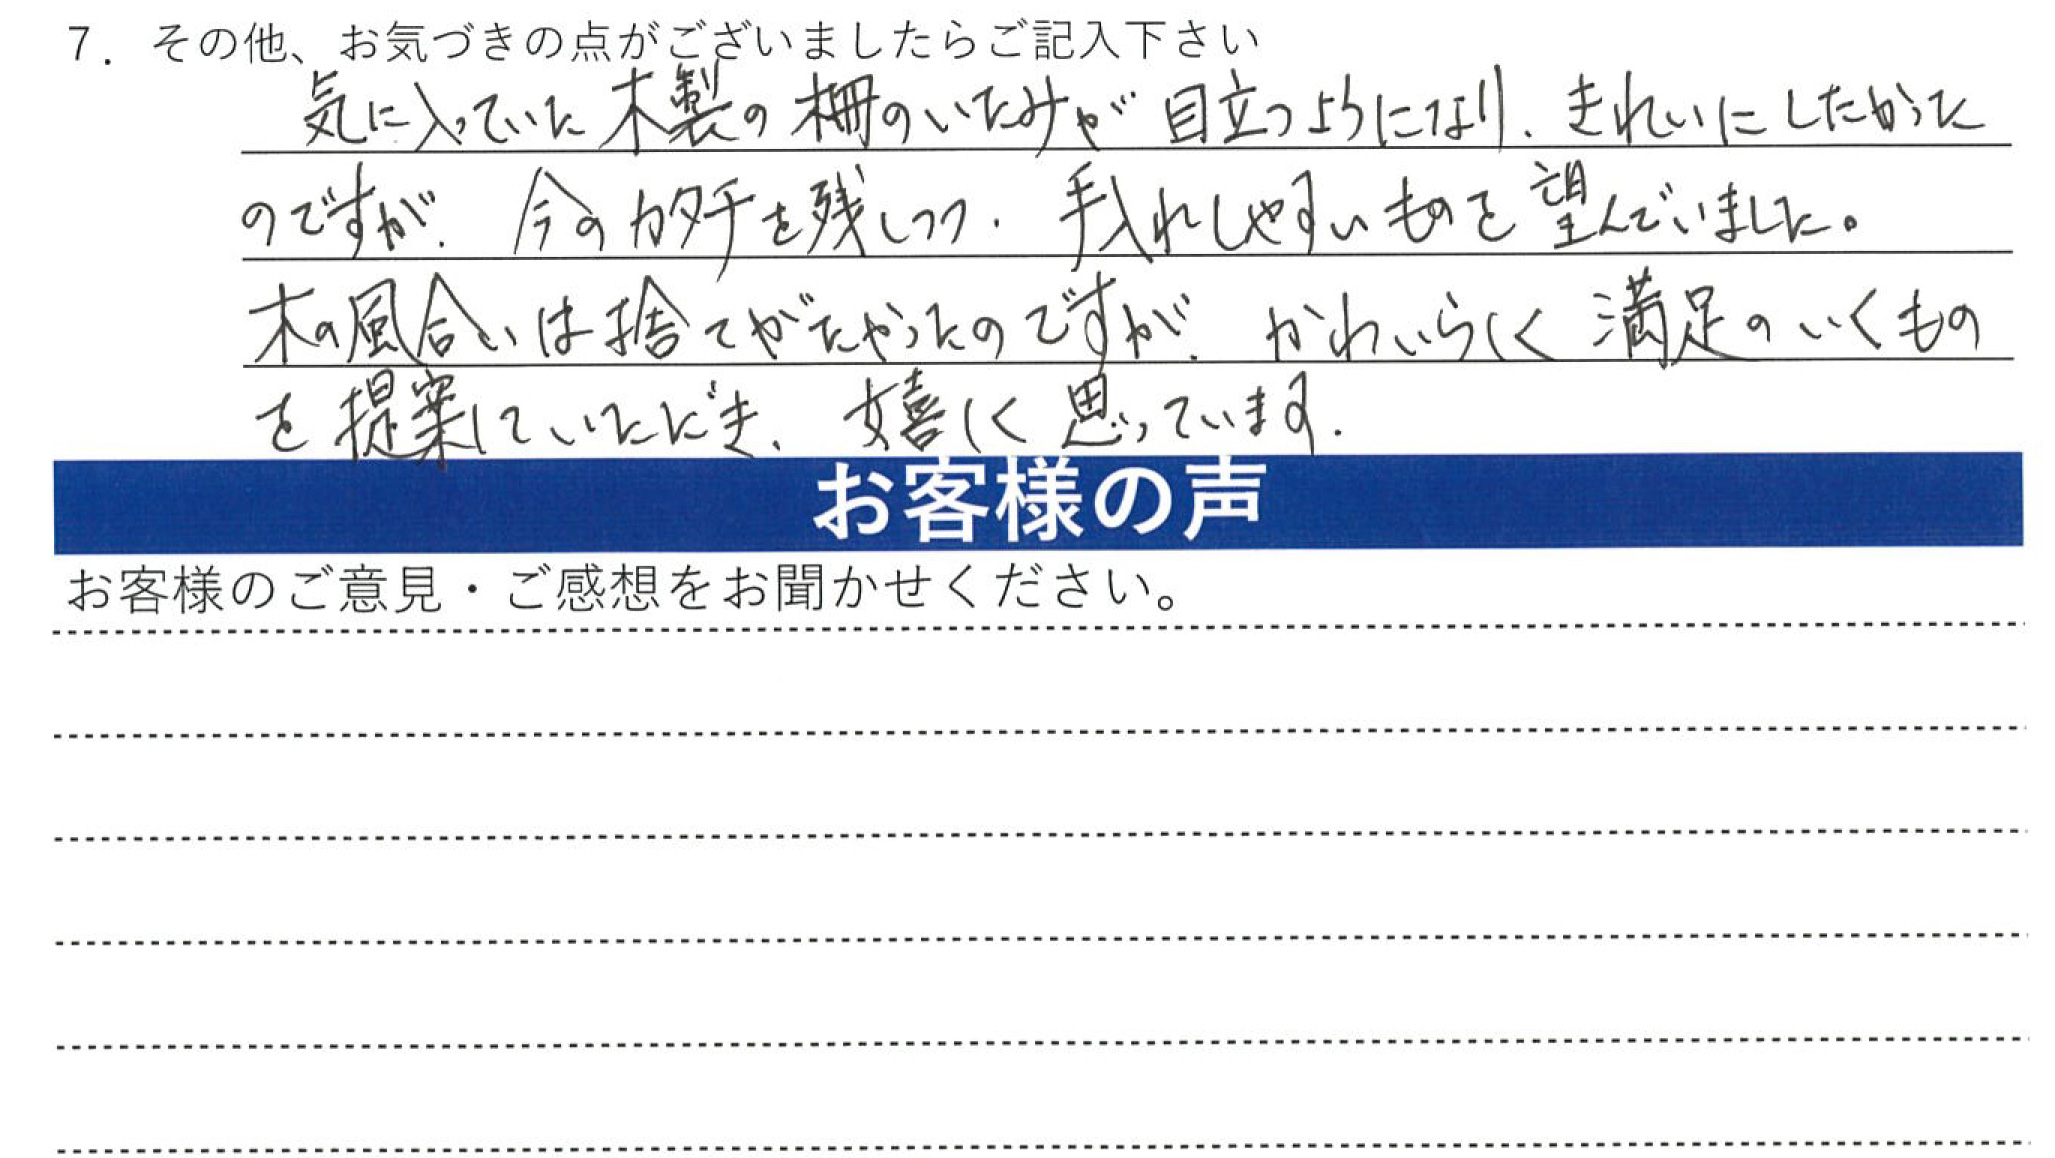 7. その他、お気づきの点がございましたらご記入下さい
気に入っていた木製の柵のいたみが目立つようになり、きれいにしたかった
のですが、今のカタチを残しつつ、手入れしやすいものを望んでいました。
木の風合いは捨てがたかったのですが、かわいらしく満足のいくもの
を提案していただき、嬉しく思っています。
お客様の声
お客様のご意見・ご感想をお聞かせください。